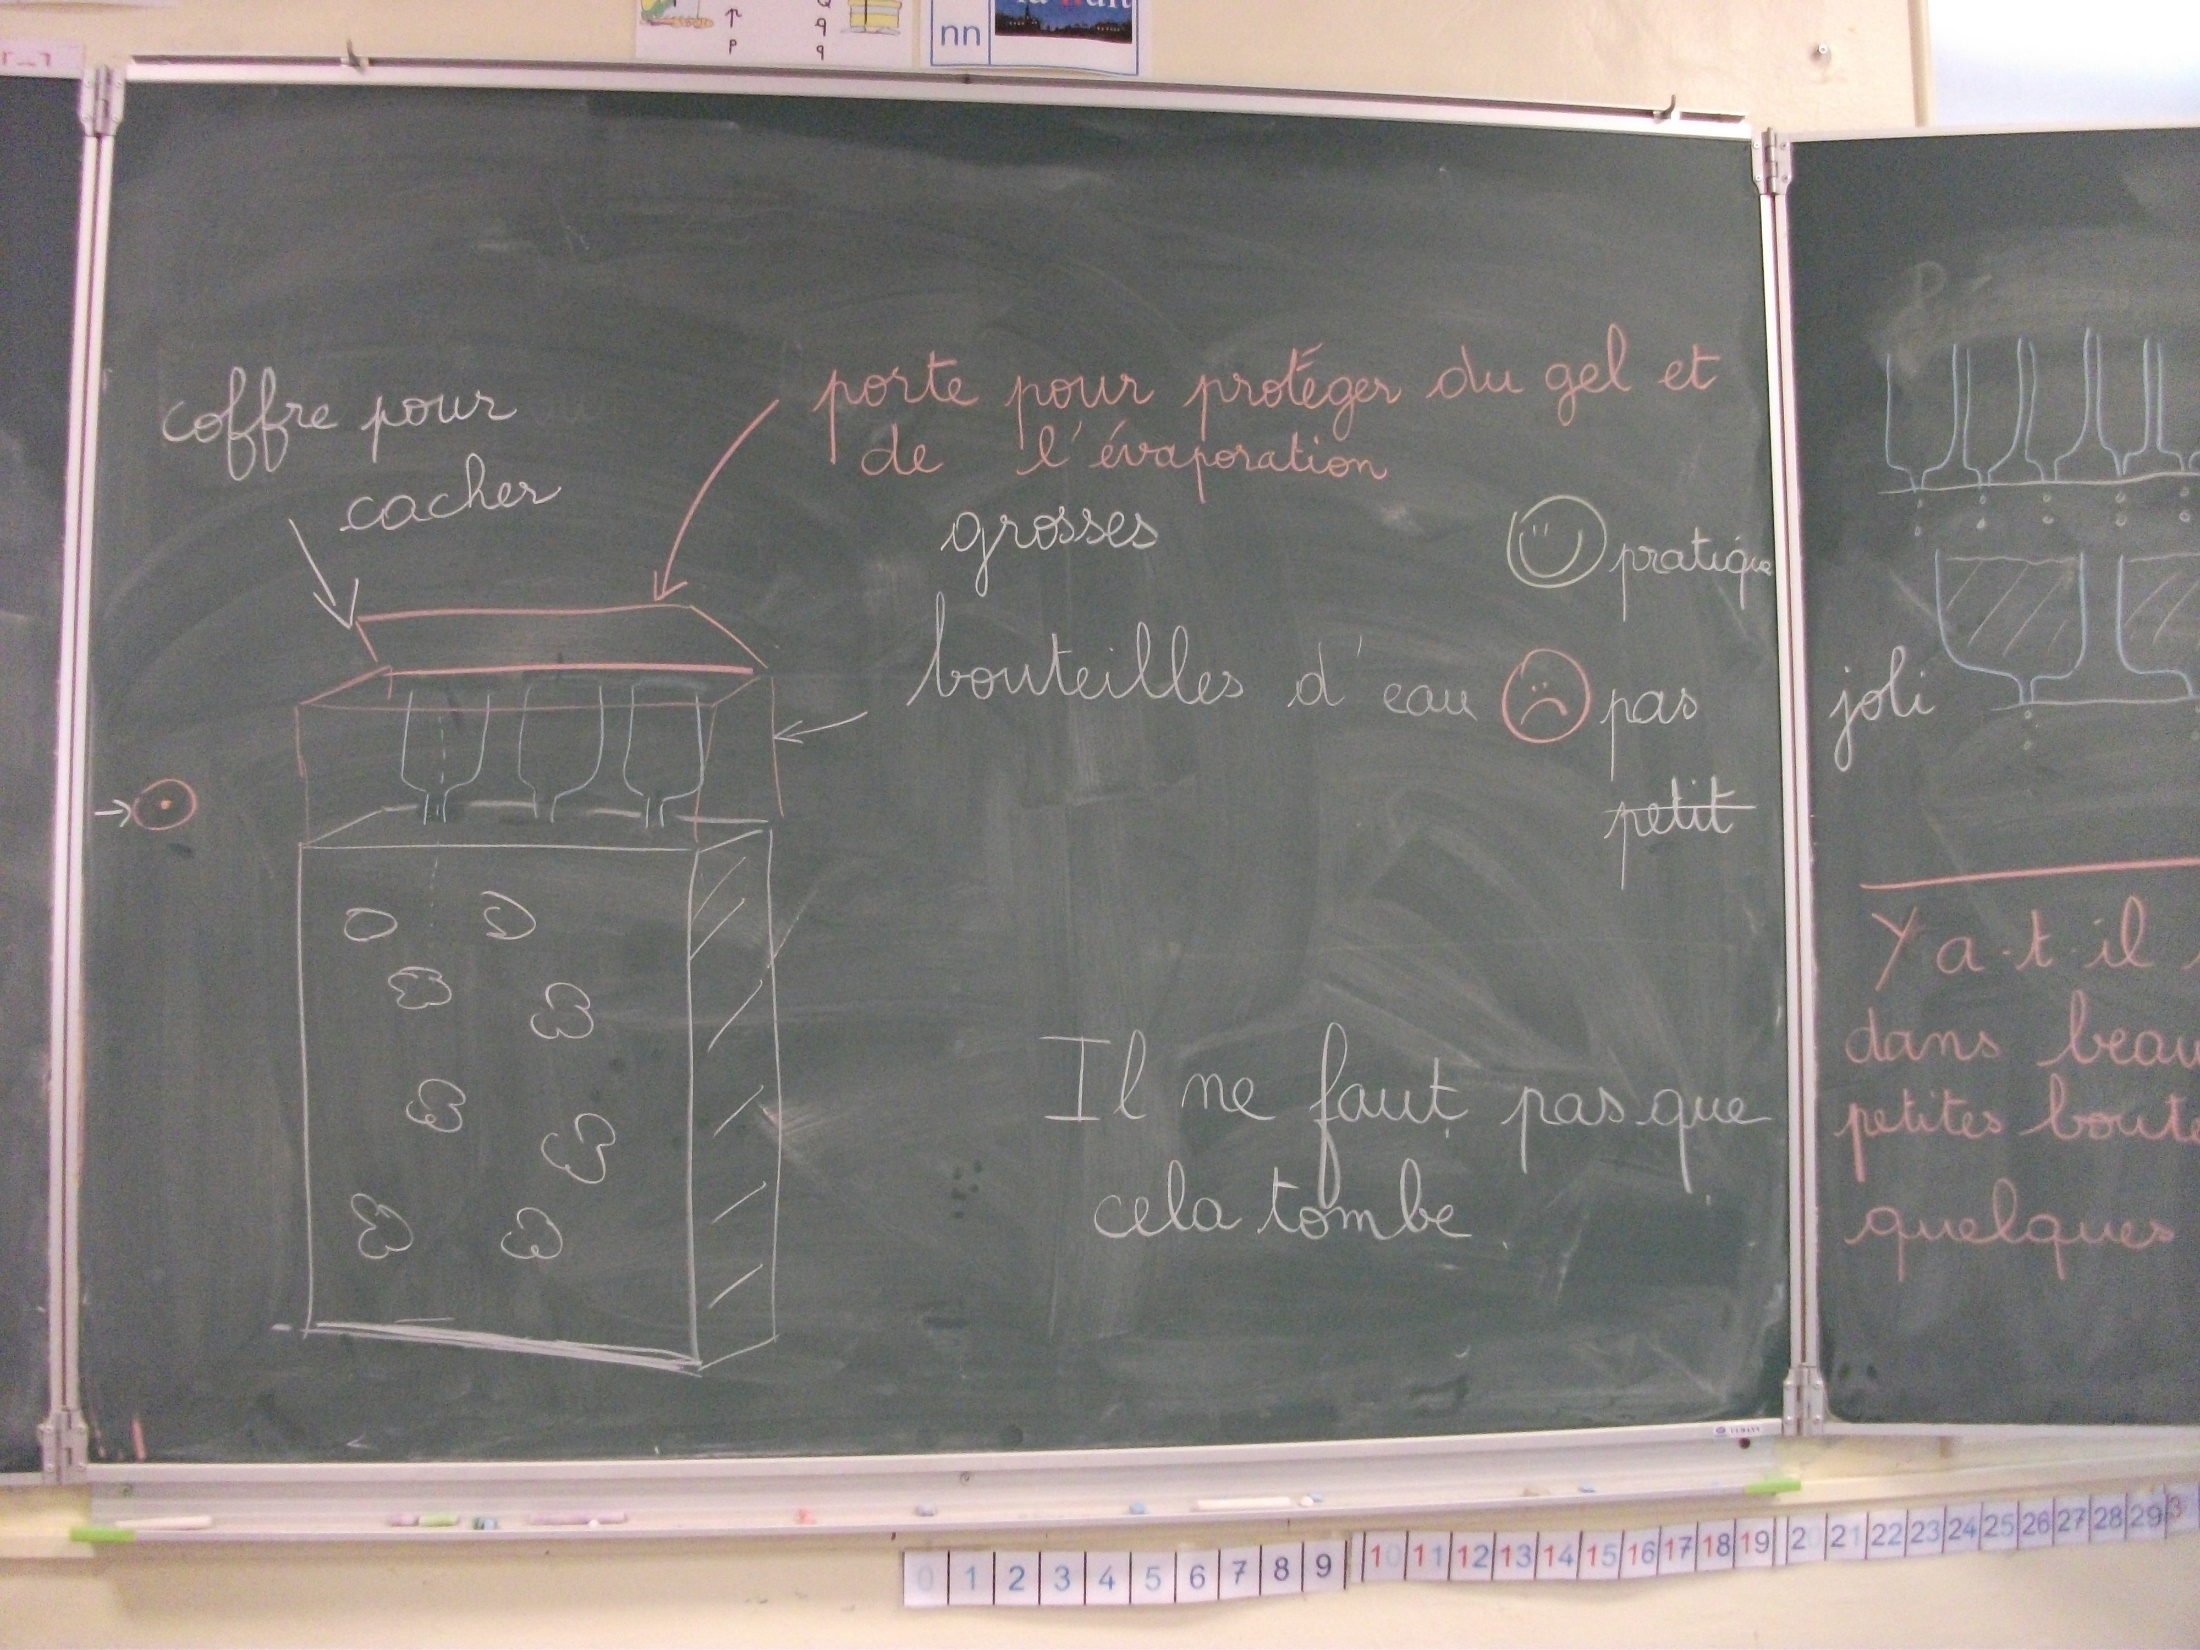 nn
la nuit
coffre pour
cacher
porte pour protéger du gel et
de l'évaporation
grosses
bouteilles d'eau
pratique
pas joli
petit
Il ne faut pas que
cela tombe.
Y a-t-il
dans beau
petites boute
quelques
0 1 2 3 4 5 6 7 8 9 10 11 12 13 14 15 16 17 18 19 20 21 22 23 24 25 26 27 28 29 3